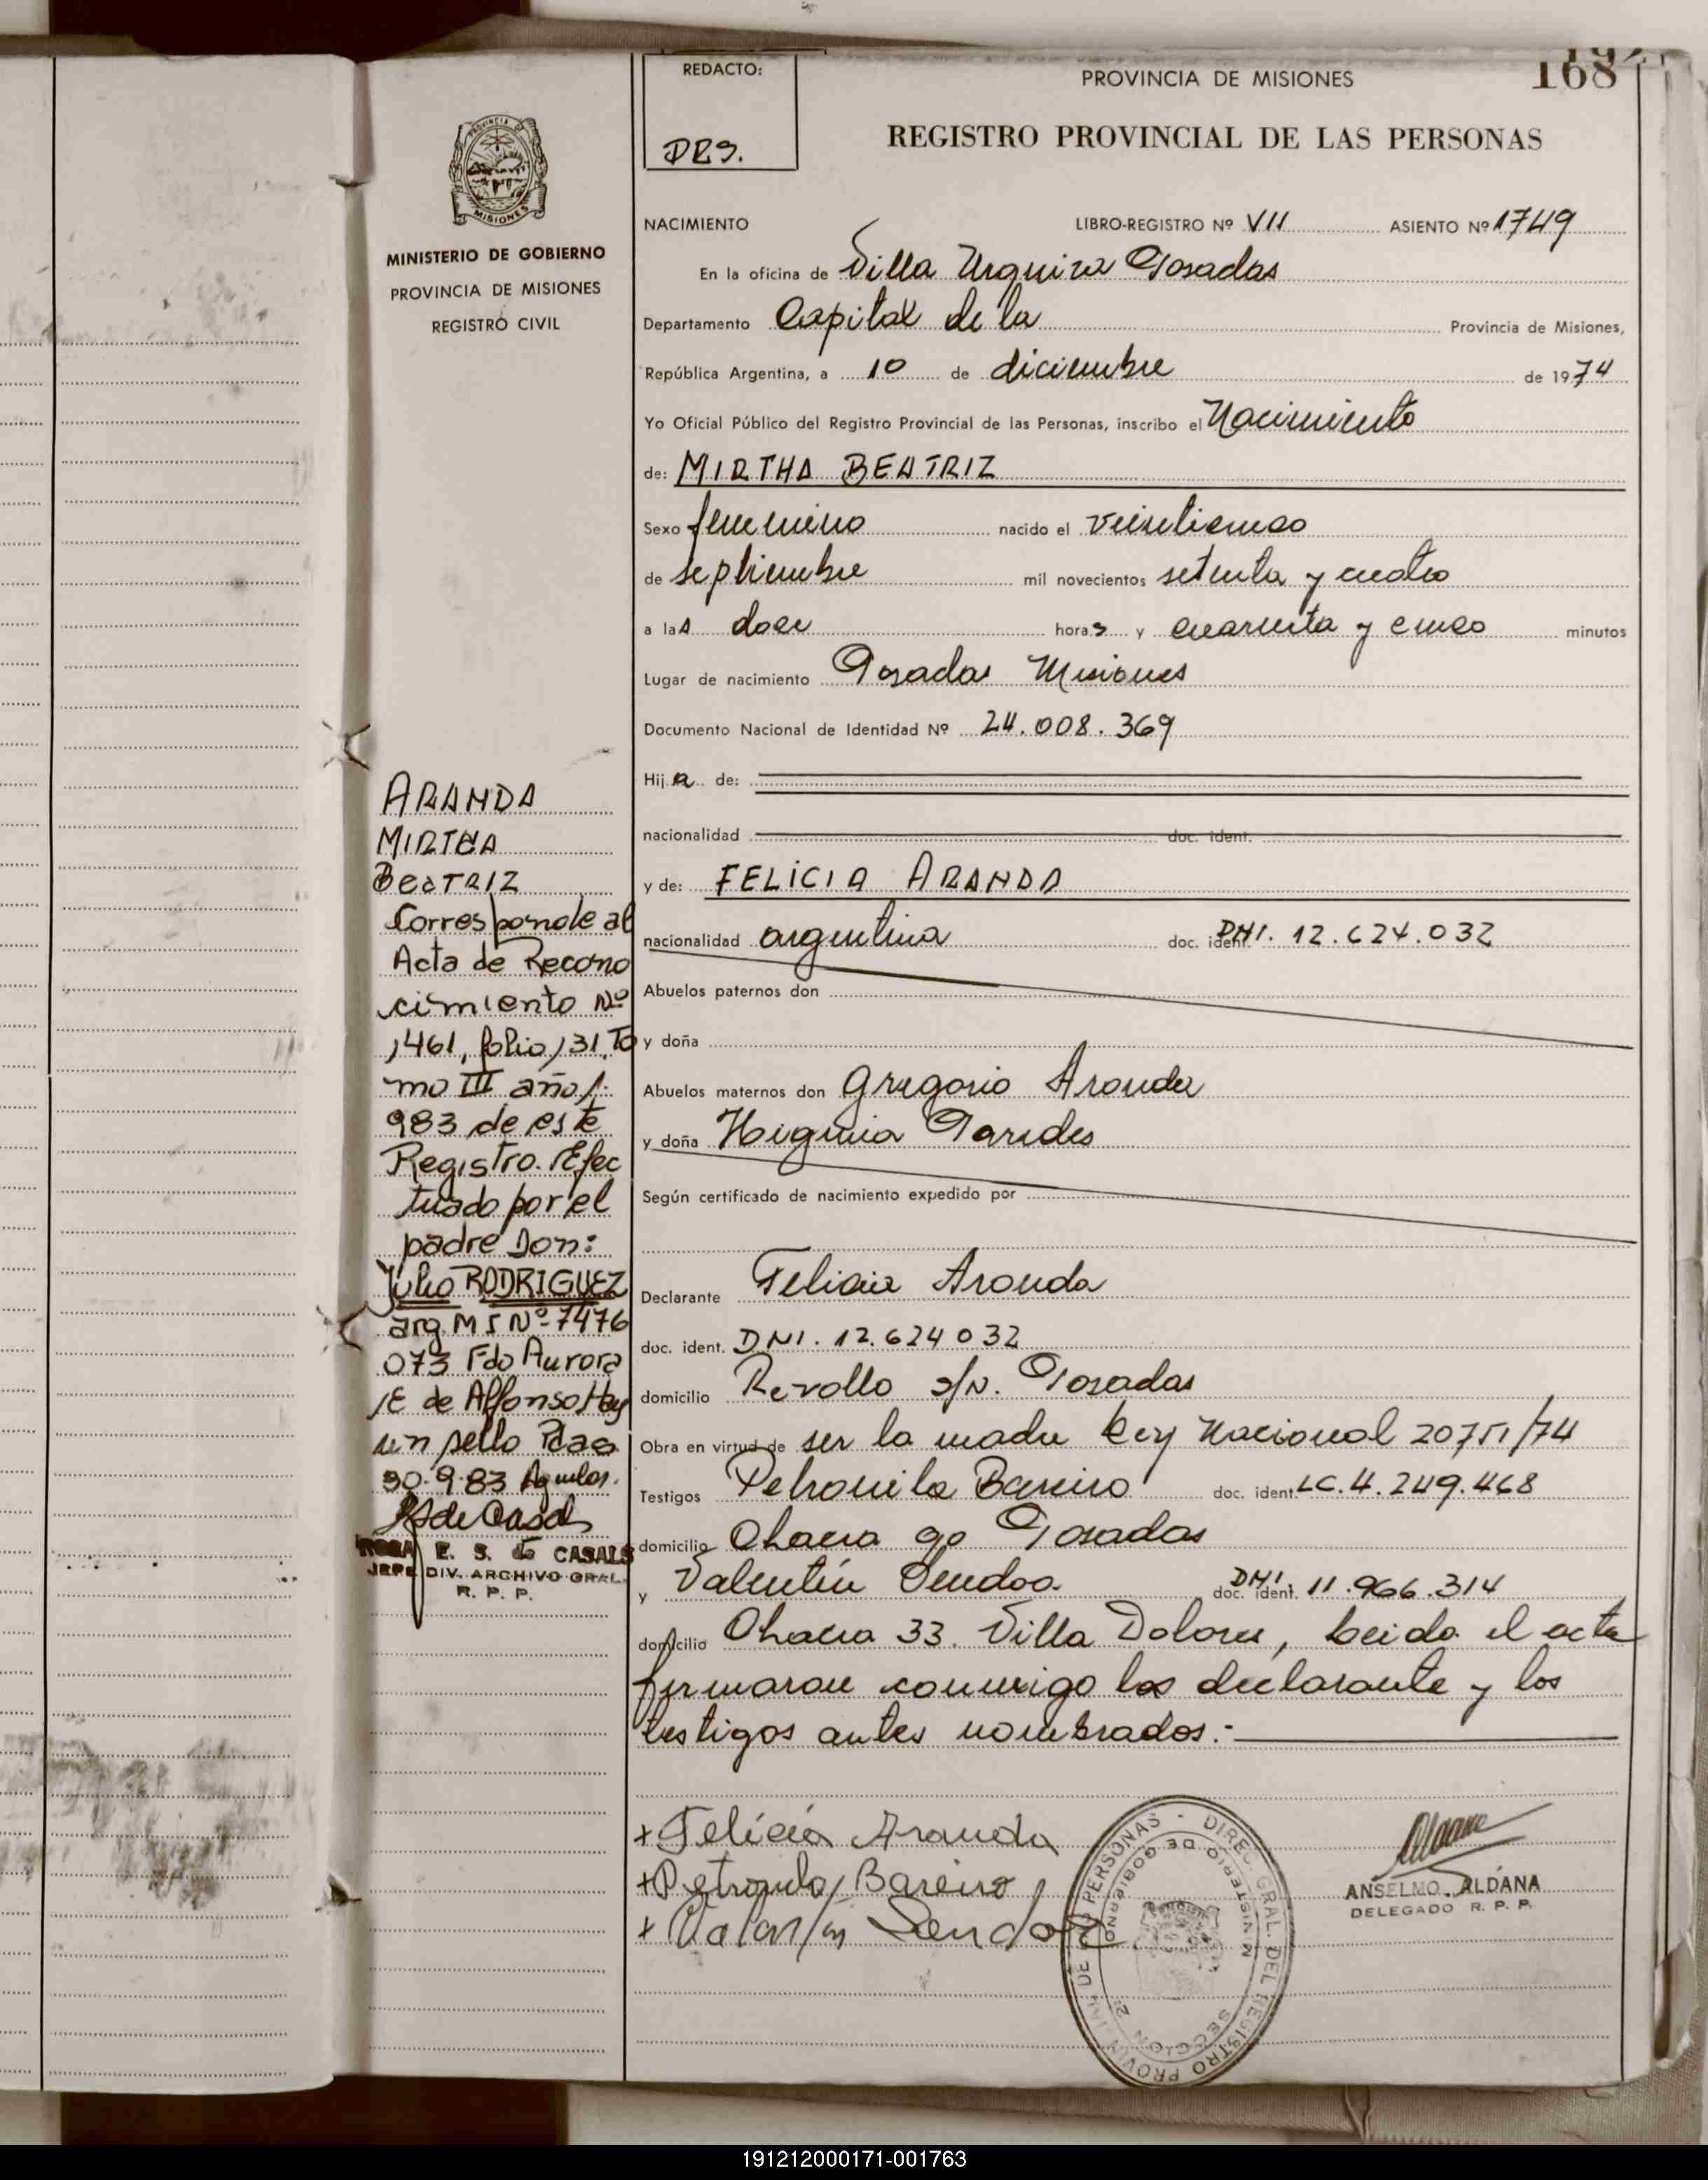 168
REDACTO:
DRS.
PROVINCIA DE MISIONES
REGISTRO PROVINCIAL DE LAS PERSONAS
PROVINCIA DE
MISIONES
MINISTERIO DE GOBIERNO
PROVINCIA DE MISIONES
REGISTRO CIVIL
NACIMIENTO LIBRO-REGISTRO Nº VII ASIENTO Nº 1749
En la oficina de Villa Urquiza Posadas
Departamento Capital de la Provincia de Misiones,
República Argentina, a 10 de diciembre de 1974
Yo Oficial Público del Registro Provincial de las Personas, inscribo el Nacimiento
de: MIRTHA BEATRIZ
Sexo femenino nacido el veinticinco
de septiembre mil novecientos setenta y cuatro
a las doce horas y cuarenta y cinco minutos
Lugar de nacimiento Posadas Misiones
Documento Nacional de Identidad Nº 24.008.369
Hija de:
nacionalidad doc. ident.
y de: FELICIA ARANDA
nacionalidad argentina doc. ident. DNI. 12.624.032
Abuelos paternos don
y doña
Abuelos maternos don Gregorio Aranda
y doña Higinia Paredes
Según certificado de nacimiento expedido por
Declarante Felicia Aranda
doc. ident. DNI. 12.624032
domicilio Revollo s/N. Posadas
Obra en virtud de ser la madre Ley Nacional 20751/74
Testigos Petronila Bareiro doc. ident. LC.4.249.468
domicilio Chacra 90 Posadas
y Valentín Sendoa doc. ident. DNI. 11.966.314
domicilio Chacra 33. Villa Dolores, leida el acta
firmaron conmigo los declarante y los
testigos antes nombrados.-
ARANDA
MIRTHA
BEATRIZ
Corresponde al
Acta de Recono
cimiento Nº
1461, folio 131, To
mo III año 1.
983 de este
Registro. Efec
tuado por el
padre Don:
Julio RODRIGUEZ
arg. M I Nº 7476
073 Fdo Aurora
E de Alfonso Hay
un sello Pdas
30.9.83
E. S. de CASALS
JEFE DIV. ARCHIVO GRAL.
R. P. P.
+ Felicia Aranda
+ Petronila Bareiro
+ Valentín Sendoa
DIREC. GRAL. DEL REGISTRO PROVINCIAL DE PERSONAS
MINISTERIO DE GOBIERNO
SECCION 2ª
ANSELMO ALDANA
DELEGADO R. P. P.
191212000171-001763